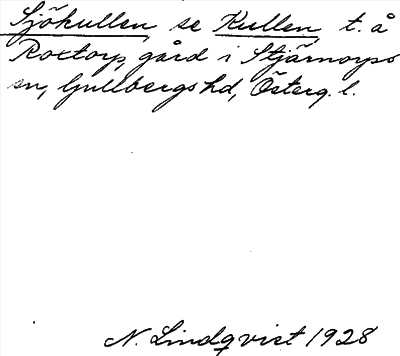 Sjökullen se Kullen, t. å
Roxtorp, gård i Stjärnorps
sn, Gullbergs hd, Österg. l.
N. Lindqvist 1928